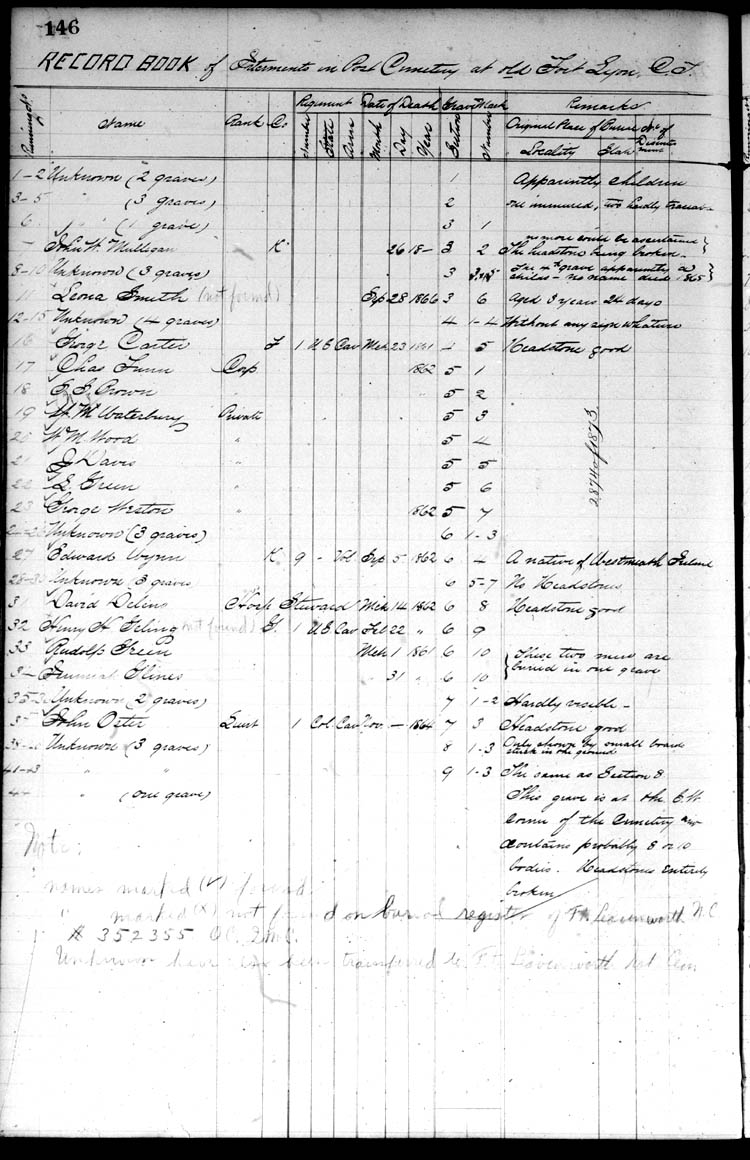 146
RECORD BOOK of Interments in Post Cemetery at old Fort Lyon, C.T.
Running No. Name Rank Co Regiment Date of Death Grave Mark Remarks
Number State Arm Month Day Year Section Number Original Place of Burial No. of Disinterment
Locality State
1-2 Unknown (2 graves) 1 Apparently children
3-5 " (3 graves) 2 One immured, two hardly traceable
6 " (1 grave) 3 1
7 John W. Milligan K 26 18- 3 2 no more could be ascertained The headstone being broken
8-10 Unknown (3 graves) 3 3.4.5 The 4th grave apparently a childs - no name died 1865
11 Leona Smith (not found) Sep 28 1866 3 6 Aged 3 years 24 days
12-15 Unknown (4 graves) 4 1-4 Without any sign whatever
16 George Carter F 1 U S Cav Mch 23 1861 4 5 Headstone good
17 Chas Corp 1862 5 1
18 Brown " 5 2
19 Waterbury Private 5 3
20 W M Wood " 5 4
21 J Davis " 5 5
22 L. Green " 5 6
23 George Weston " 1862 5 7
24-26 Unknown (3 graves) 6 1-3
27 Edward Wynn K 9 - Vol Sep 5 1862 6 4 A native of Westmeath Ireland
28-30 Unknown (3 graves 6 5-7 No Headstones
31 David Hosp Steward Mch 14 1862 6 8 Headstone good
32 Henry H (not found) G. 1 U S Cav Feb 22 " 6 9
33 Rudolf Green Mch 1 1861 6 10 These two men are
34 Hines 31 " 6 10 buried in one grave
35-36 Unknown (2 graves) 7 1-2 Hardly visible -
37 John Oster Lieut 1 Col. Cav Nov. - 1864 7 3 Headstone good
38-40 Unknown (3 graves) 8 1-3 Only shown by small board stuck in the ground
41-43 " " 9 1-3 The same as Section 8
44 " (one grave) This grave is at the S.W.
corner of the Cemetery and
contains probably 8 or 10
bodies. Headstones entirely
broken
2874 of 1873
Note:
names marked (✓) found
" marked (x) not found on burial register of Ft. Leavenworth N.C.
352355 Q.M.C.
Unknown have been transferred to Ft. Leavenworth Nat Cem